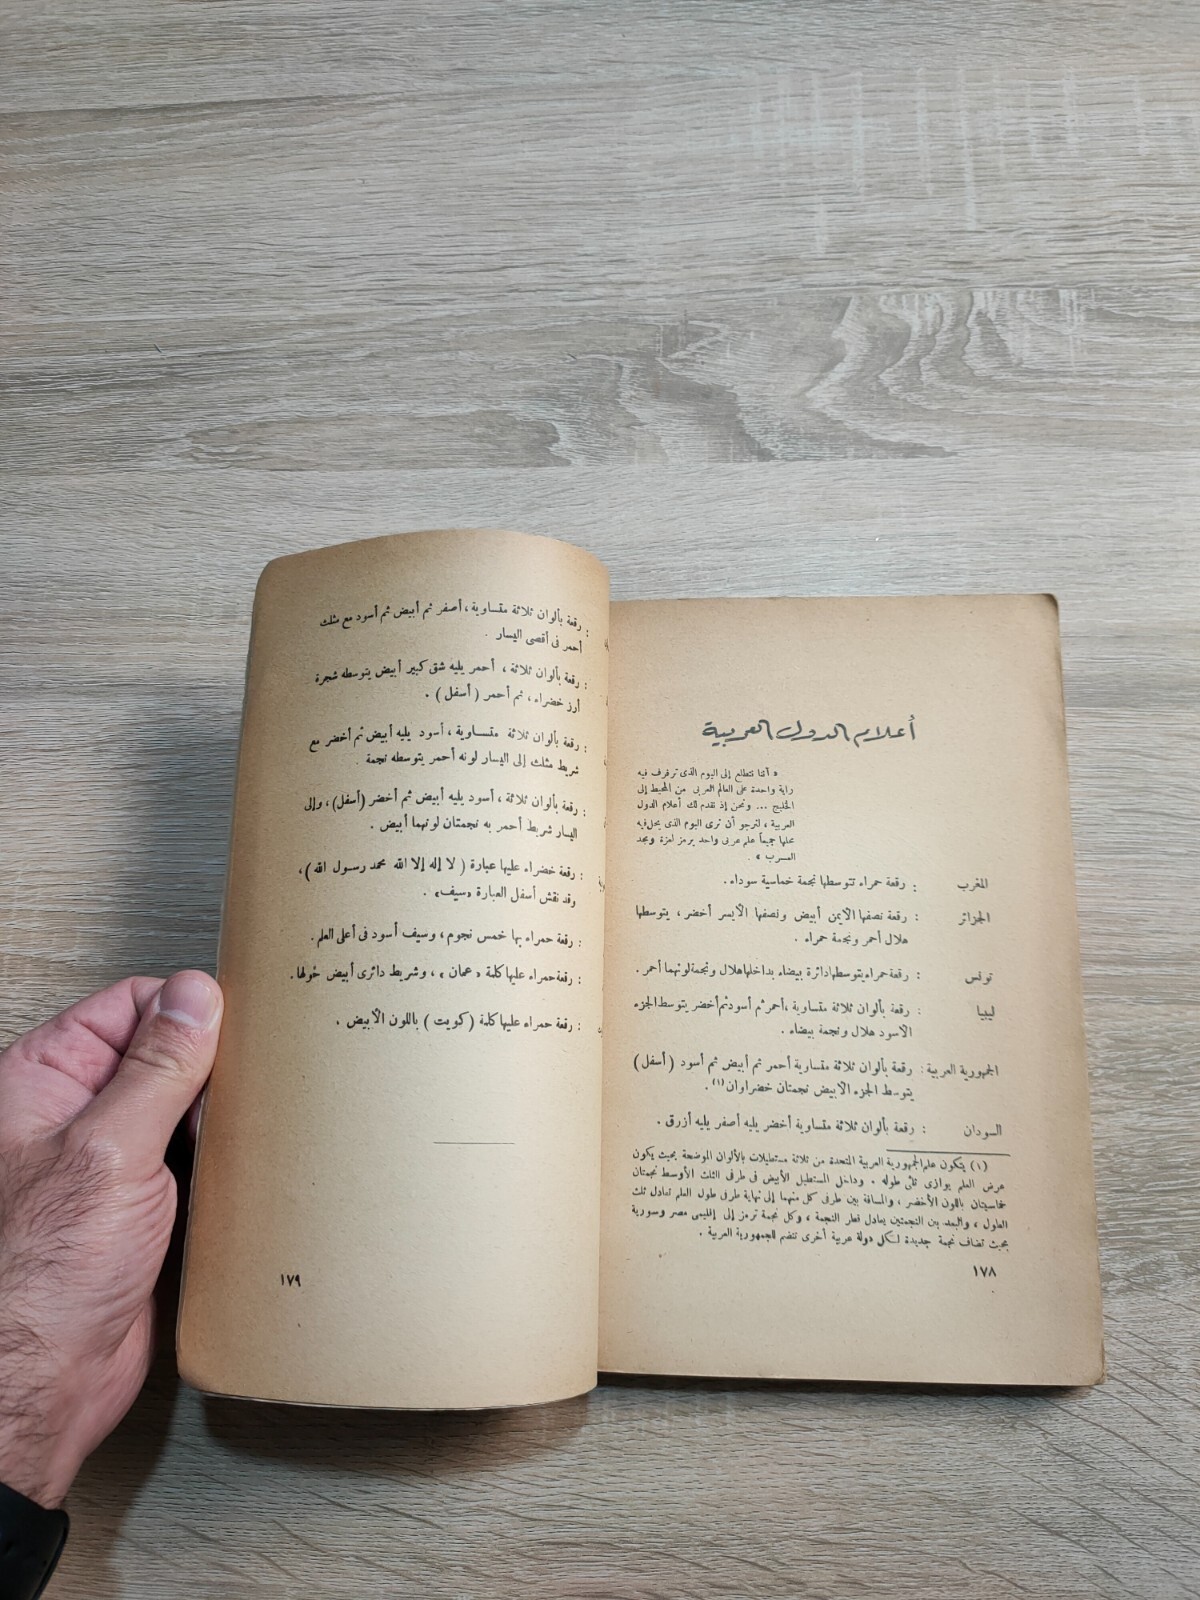 أعلام الدول العربية
« أننا نتطلع إلى اليوم الذى ترفرف فيه
راية واحدة على العالم العربى من المحيط إلى
الخليج ... ونحن إذ نقدم لك أعلام الدول
العربية ، لنرجو أن ترى اليوم الذى يحل فيه
محلها جميعاً علم عربى واحد يرمز لعزة ومجد
العرب » .
المغرب : رقعة حمراء تتوسطها نجمة خماسية سوداء .
الجزائر : رقعة نصفها الأيمن أبيض ونصفها الأيسر أخضر ، يتوسطها
هلال أحمر ونجمة حمراء .
تونس : رقعة حمراء يتوسطها دائرة بيضاء بداخلها هلال ونجمة لونهما أحمر .
ليبيا : رقعة بألوان ثلاثة متساوية ، أحمر ثم أسود ثم أخضر يتوسط الجزء
الأسود هلال ونجمة بيضاء .
الجمهورية العربية : رقعة بألوان ثلاثة متساوية أحمر ثم أبيض ثم أسود ( أسفل )
يتوسط الجزء الأبيض نجمتان خضراوان (١) .
السودان : رقعة بألوان ثلاثة متساوية أخضر يليه أصفر يليه أزرق .
(١) يتكون علم الجمهورية العربية المتحدة من ثلاثة مستطيلات بالألوان الموضحة بحيث يكون
عرض العلم يوازى ثلثى طوله . وداخل المستطيل الأبيض فى طرفى الثلث الأوسط نجمتان
خماسيتان باللون الأخضر ، والمسافة بين طرفى كل منهما إلى نهاية طرفى طول العلم تعادل ثلث
الطول ، والبعد بين النجمتين يعادل قطر النجمة ، وكل نجمة ترمز إلى إقليمى مصر وسورية
بحيث تضاف نجمة جديدة لكل دولة عربية أخرى تنضم للجمهورية العربية .
١٧٨
: رقعة بألوان ثلاثة متساوية ، أصفر ثم أبيض ثم أسود مع مثلث
أحمر فى أقصى اليسار .
: رقعة بألوان ثلاثة ، أحمر يليه شق كبير أبيض يتوسطه شجرة
أرز خضراء ، ثم أحمر ( أسفل ) .
: رقعة بألوان ثلاثة متساوية ، أسود يليه أبيض ثم أخضر مع
شريط مثلث إلى اليسار لونه أحمر يتوسطه نجمة .
: رقعة بألوان ثلاثة ، أسود يليه أبيض ثم أخضر (أسفل) ، وإلى
اليسار شريط أحمر به نجمتان لونهما أبيض .
: رقعة خضراء عليها عبارة ( لا إله إلا الله محمد رسول الله ) ،
وقد نقش أسفل العبارة «سيف» .
: رقعة حمراء بها خمس نجوم ، وسيف أسود فى أعلى العلم .
: رقعة حمراء عليها كلمة « عمان » ، وشريط دائرى أبيض حولها .
: رقعة حمراء عليها كلمة ( كويت ) باللون الأبيض .
١٧٩